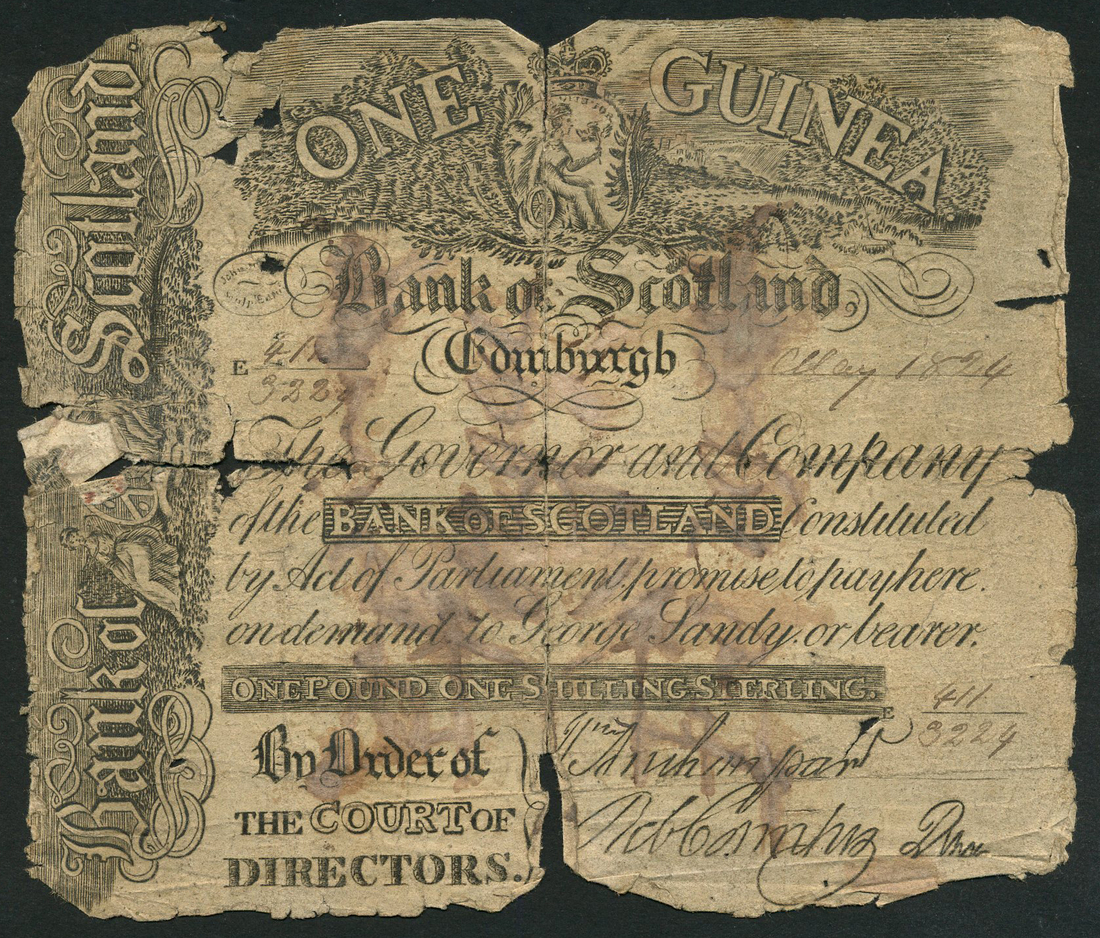 Bank of Scotland.
ONE GUINEA.
Bank of Scotland,
Edinburgh
E 411
3224
May 1824
The Governor and Company
of the BANK OF SCOTLAND Constituted
by Act of Parliament, promise to pay here.
on demand to George Sandy, or bearer,
ONE POUND ONE SHILLING STERLING.
E 411
3224
By Order of
THE COURT OF
DIRECTORS.